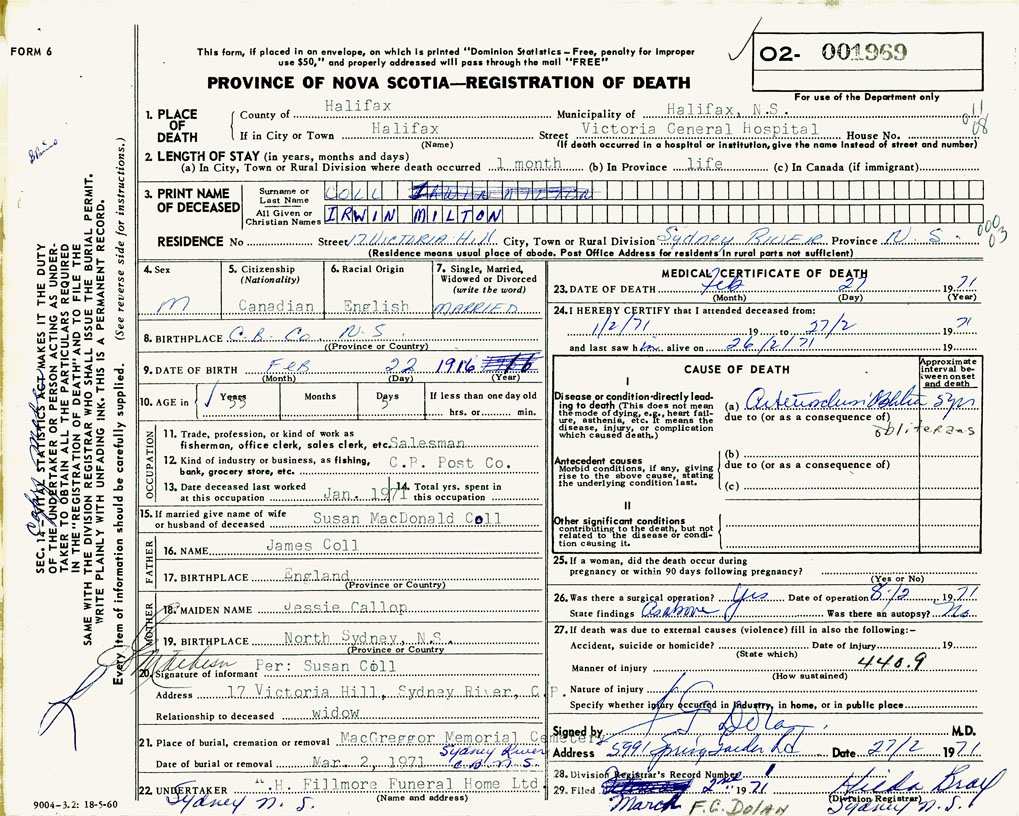 FORM 6
This form, if placed in an envelope, on which is printed "Dominion Statistics – Free, penalty for improper
use $50," and properly addressed will pass through the mail "FREE"
O2- 001969
PROVINCE OF NOVA SCOTIA—REGISTRATION OF DEATH
For use of the Department only
1. PLACE OF DEATH
County of Halifax Municipality of Halifax, N.S.
If in City or Town Halifax Street Victoria General Hospital House No.
(Name) (If death occurred in a hospital or institution, give the name instead of street and number)
011
08
2. LENGTH OF STAY (in years, months and days)
(a) In City, Town or Rural Division where death occurred 1 month (b) In Province life (c) In Canada (if immigrant)
3. PRINT NAME OF DECEASED
Surname or Last Name COLL IRWIN MILTON
All Given or Christian Names IRWIN MILTON
RESIDENCE No Street 17 VICTORIA Hill City, Town or Rural Division SYDNEY RIVER Province N. S.
(Residence means usual place of abode. Post Office Address for residents in rural parts not sufficient)
000
03
4. Sex
M
5. Citizenship
(Nationality)
Canadian
6. Racial Origin
English
7. Single, Married,
Widowed or Divorced
(write the word)
MARRIED
8. BIRTHPLACE C.B. Co. N.S.
((Province or Country)
9. DATE OF BIRTH FEB 22 1916
(Month) (Day) (Year)
10. AGE in Years 55 Months Days 5 If less than one day old
hrs. or min.
OCCUPATION
11. Trade, profession, or kind of work as
fisherman, office clerk, sales clerk, etc. Salesman
12. Kind of industry or business, as fishing,
bank, grocery store, etc. C.P. Post Co.
13. Date deceased last worked
at this occupation Jan. 1971
14. Total yrs. spent in
this occupation
15. If married give name of wife
or husband of deceased Susan MacDonald Coll
FATHER
16. NAME James Coll
17. BIRTHPLACE England
(Province or Country)
MOTHER
18. MAIDEN NAME Jessie Callop
19. BIRTHPLACE North Sydney, N.S.
(Province or Country
20. Signature of informant Per: Susan Coll
Address 17 Victoria Hill, Sydney River, C.B.
Relationship to deceased widow
21. Place of burial, cremation or removal MacGreggor Memorial Cemetery
Sydney River
C.B. N.S.
Date of burial or removal Mar. 2, 1971
22. UNDERTAKER H. Fillmore Funeral Home Ltd.
(Name and address)
Sydney N. S.
MEDICAL CERTIFICATE OF DEATH
23. DATE OF DEATH Feb 27 1971
(Month) (Day) (Year)
24. I HEREBY CERTIFY that I attended deceased from:
1/2/71 19 to 27/2 1971
and last saw him alive on 26/2/71 19
CAUSE OF DEATH
Approximate
interval be-
tween onset
and death
I
Disease or condition directly lead-
ing to death (This does not mean
the mode of dying, e.g., heart fail-
ure, asthenia, etc. It means the
disease, injury, or complication
which caused death.)
(a) 5 yrs
due to (or as a consequence of)
obliterans
Antecedent causes
Morbid conditions, if any, giving
rise to the above cause, stating
the underlying condition last.
(b)
due to (or as a consequence of)
(c)
II
Other significant conditions
contributing to the death, but not
related to the disease or condi-
tion causing it.
25. If a woman, did the death occur during
pregnancy or within 90 days following pregnancy?
(Yes or No)
26. Was there a surgical operation? Yes Date of operation 8/2 1971
State findings As above Was there an autopsy? No
27. If death was due to external causes (violence) fill in also the following:–
Accident, suicide or homicide? Date of injury 19
(State which)
Manner of injury 440.9
(How sustained)
Nature of injury
Specify whether injury occurred in industry, in home, or in public place
Signed by Dolan M.D.
Address 5991 Spring Garden Rd Date 27/2 1971
28. Division Registrar's Record Number
29. Filed March 2nd 1971
F.G. DOLAN
Hilda Bray
(Division Registrar)
Sydney N. S.
SEC. 14—VITAL STATISTICS ACT MAKES IT THE DUTY
OF THE UNDERTAKER OR PERSON ACTING AS UNDER-
TAKER TO OBTAIN ALL THE PARTICULARS REQUIRED
IN THE "REGISTRATION OF DEATH" AND TO FILE THE
SAME WITH THE DIVISION REGISTRAR WHO SHALL ISSUE THE BURIAL PERMIT.
WRITE PLAINLY WITH UNFADING INK. THIS IS A PERMANENT RECORD.
Every item of information should be carefully supplied. (See reverse side for instructions.)
9004-3.2: 18-5-60